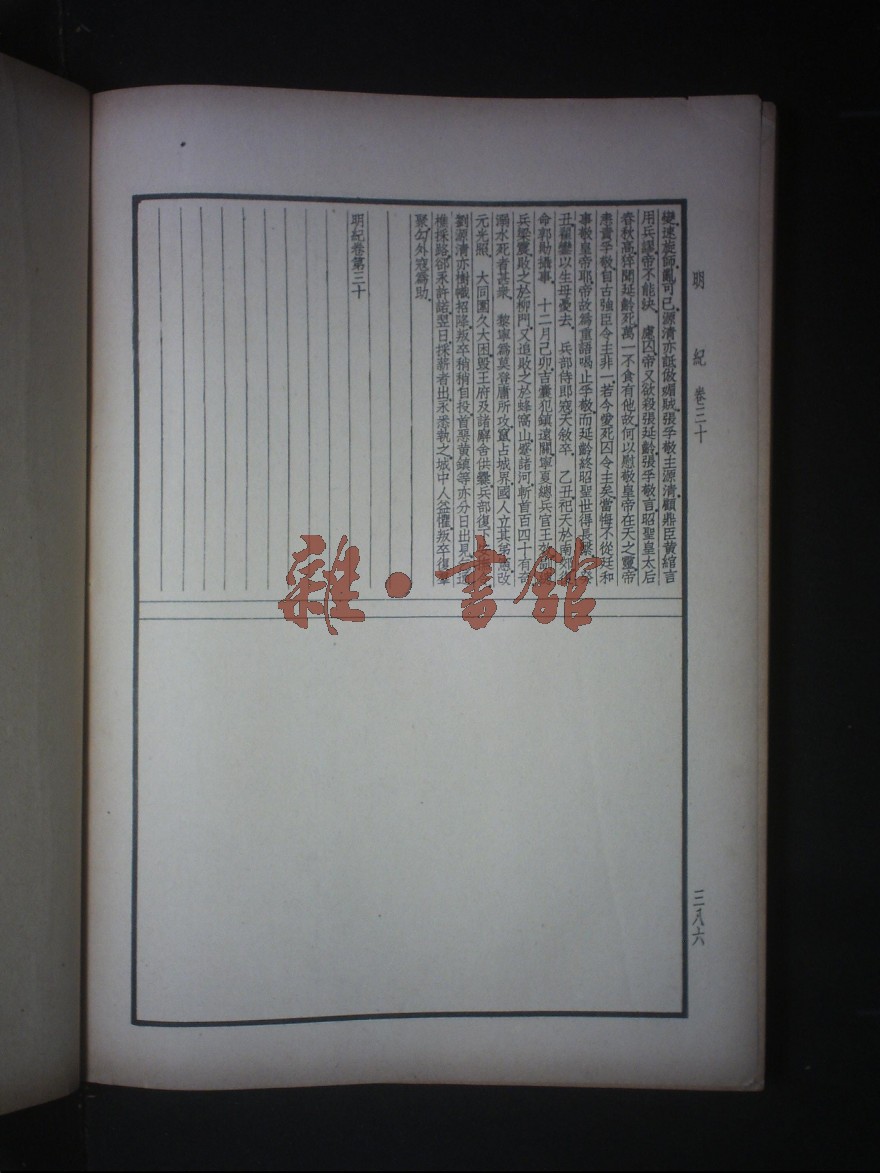 明紀 卷三十
變速旋師亂可已源清亦詆倣媚賊張孚敬主源清顧鼎臣黃綰言
用兵謬帝不能決 慮囚帝又欲殺張延齡張孚敬言昭聖皇太后
春秋高猝聞延齡死萬一不食有他故何以慰敬皇帝在天之靈帝
恚責孚敬自古強臣令主非一若今愛死囚令主矣當悔不從廷和
事敬皇帝耶帝故為重語喝止孚敬而延齡終昭聖世得長繫
丑翟鑾以生母憂去 兵部侍郎寇天敘卒 乙丑祀天於南郊
命郭勛攝事 十二月己卯吉囊犯鎮遠關寧夏總兵官王效
兵梁震敗之於柳門又追敗之於蜂窩山蹙諸河斬首百四十有奇
溺水死者甚衆 黎寧為莫登庸所攻竄占城界國人立其弟憲改
元光照 大同圍久大困毀王府及諸廨舍供爨兵部復下
劉源清亦樹幟招降叛卒稍稍自投首惡黃鎮等亦分日出見
樵採路郤永許諾翌日採薪者出永悉執之城中人益懼叛卒復
聚勾外寇為助
明紀卷第三十
三八六
雜·書館